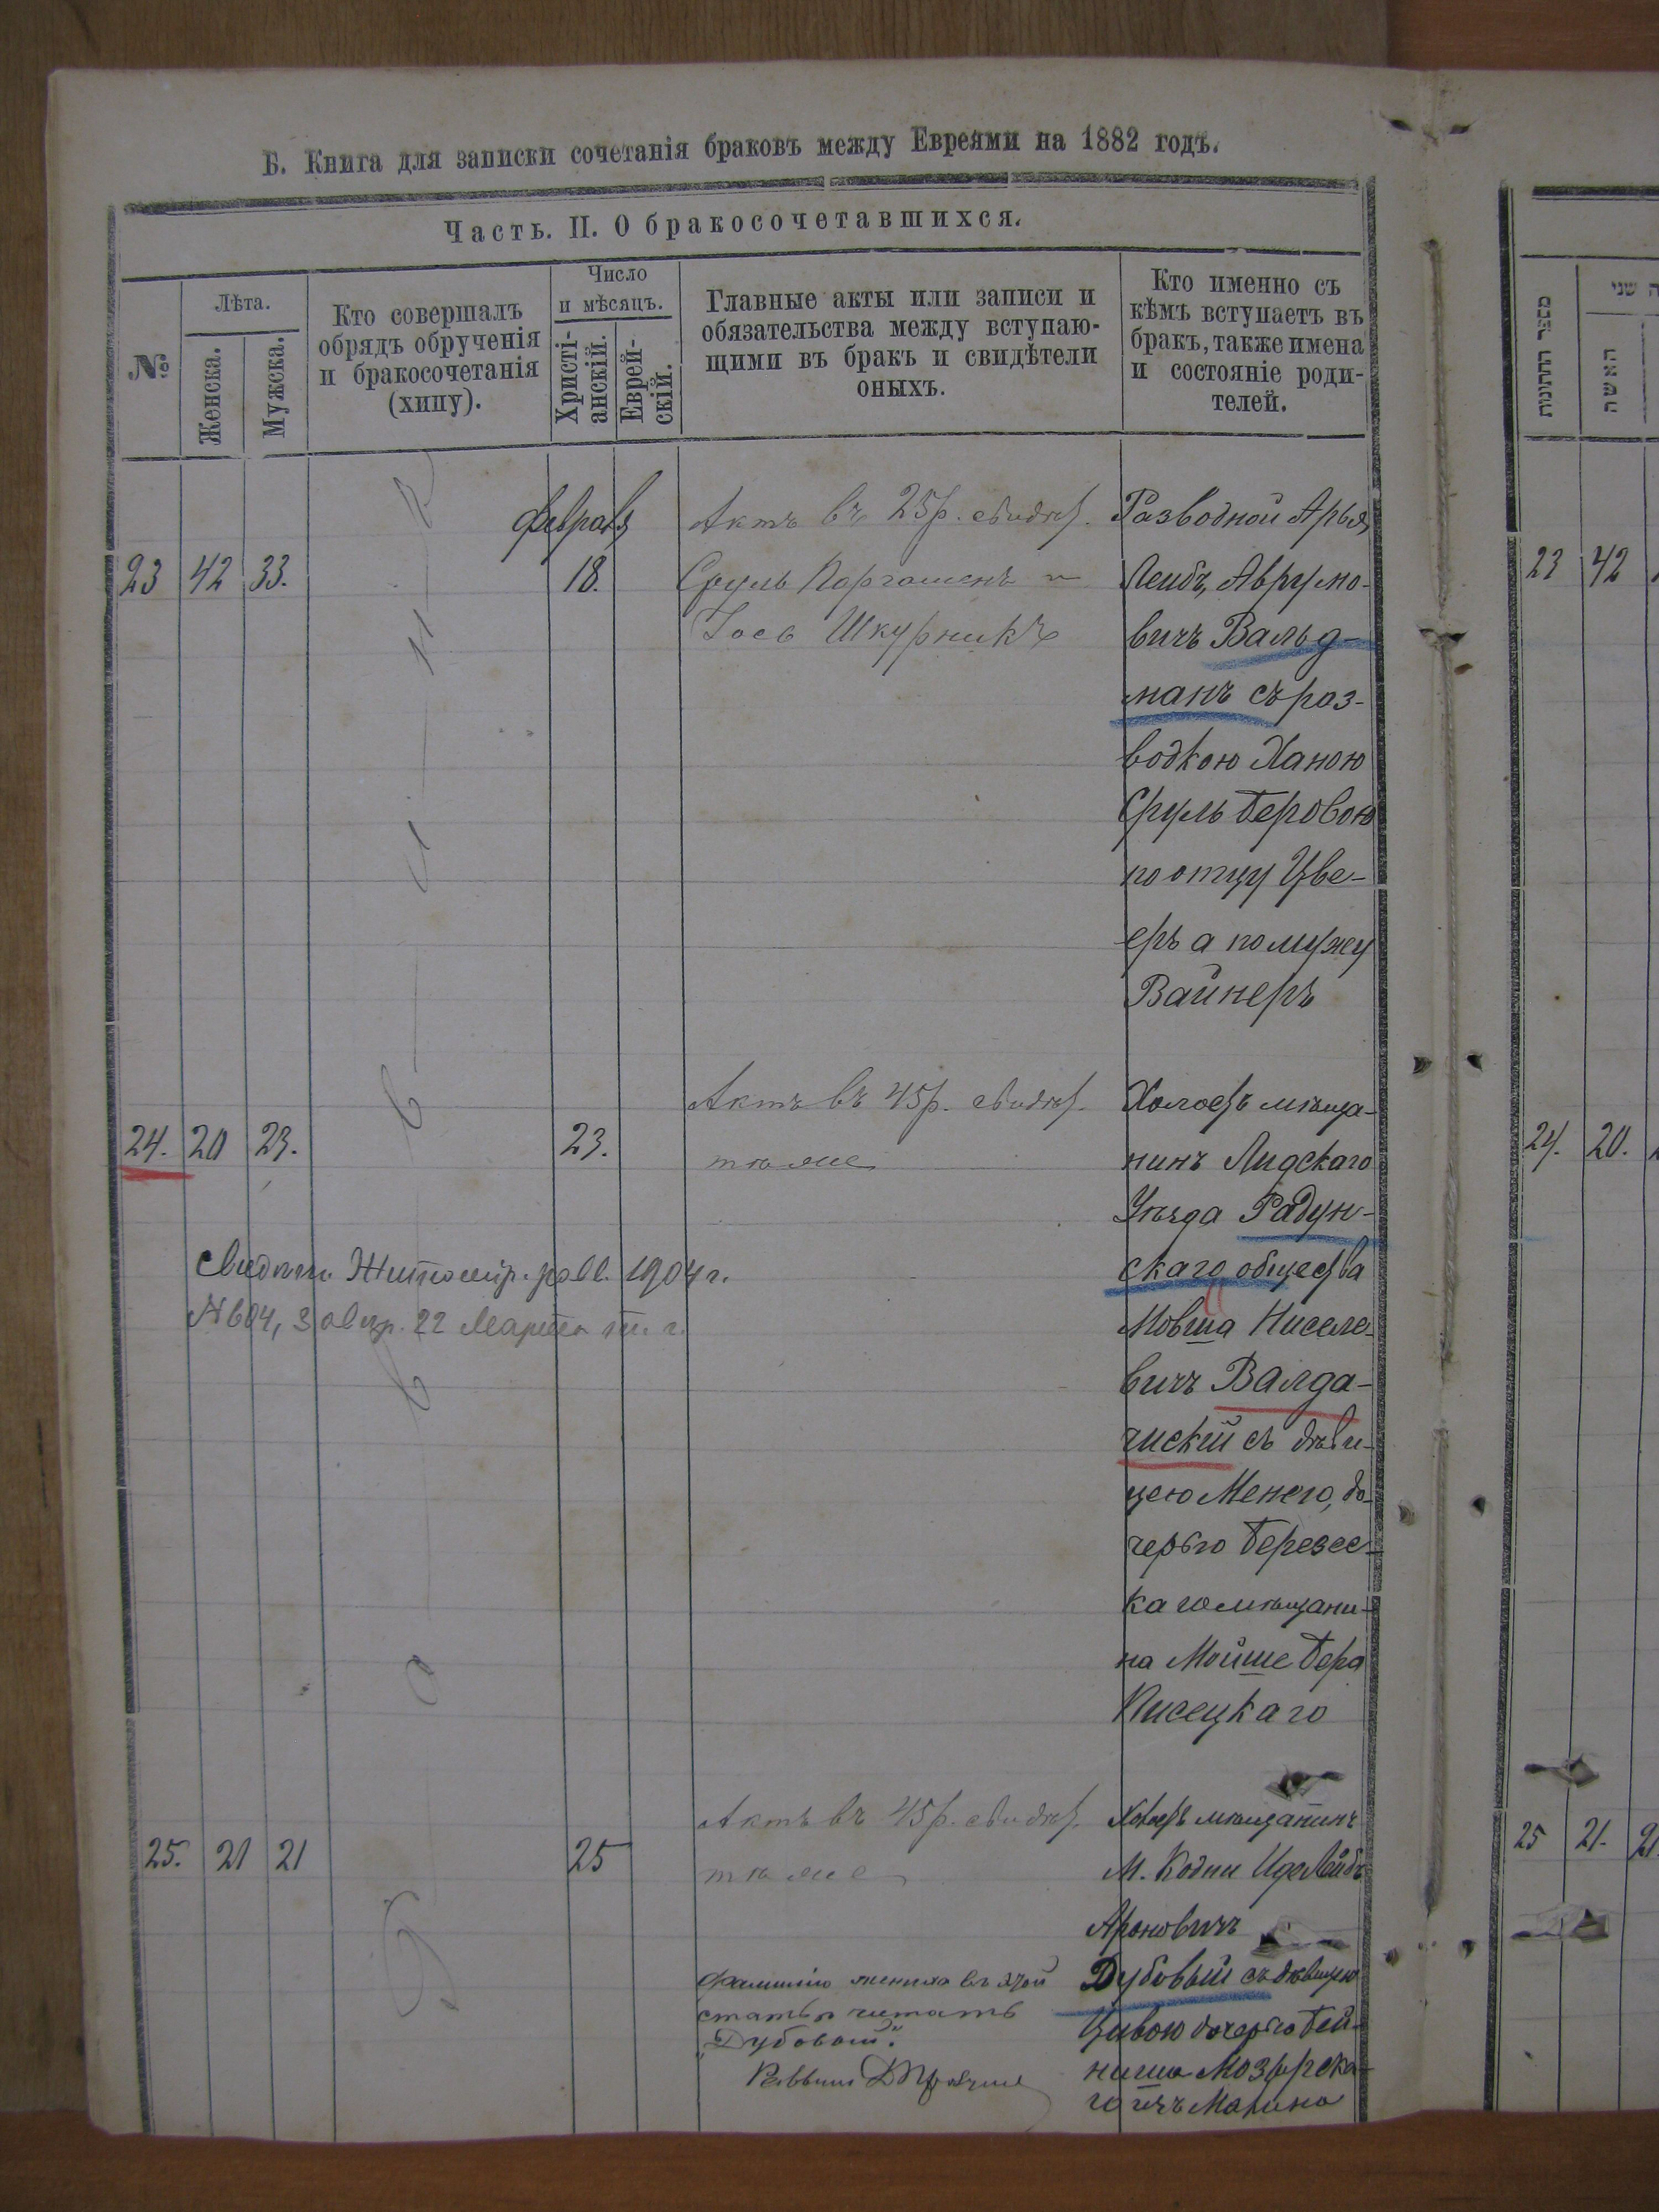 Б. Книга для записки сочетанія браковъ между Евреями на 1882 годъ.
Часть. II. О бракосочетавшихся.
№
Лѣта.
Женска.
Мужска.
Кто совершалъ
обрядъ обрученія
и бракосочетанія
(хипу).
Число
и мѣсяцъ.
Христі-
анскій.
Еврей-
скій.
Главные акты или записи и
обязательства между вступаю-
щими въ бракъ и свидѣтели
оныхъ.
Кто именно съ
кѣмъ вступаетъ въ
бракъ, также имена
и состояніе роди-
телей.
февраля
23 42 33. 18.
Актъ въ 25 р. свидѣт.
Сруль и
Іось Шкурникъ
Разводной Арья
Леибъ, Аврумо-
вичъ Вальд-
манъ съ раз-
водкою Ханою
Сруль Беровою
по отцу Цве-
еръ а по мужу
Вайнеръ
24. 20 23. 23.
Актъ въ 45 р. свидѣт.
тѣ же
Холостъ мѣща-
нинъ Лидскаго
Уѣзда Радун-
скаго общества
Мовша Нисело-
вичъ Валда-
чискій съ дѣви-
цею Менею, до-
черью Березес-
каго мѣщани-
на Мойше Бера
Писецкаго
Свидѣт. Житомір. равв. 1904 г.
N 604, 3 авпр. 22 Марта т. г.
25. 21 21 25
Актъ въ 45 р. свидѣт.
тѣ же
Холостъ мѣщанинъ
М. Кодни Иде Лейбъ
Ароновичъ
Дубовый съ дѣвицею
Цивою дочерью Бей-
ниша Мозырска-
го изъ
Фамилію жениха въ этой
статьѣ читать
„Дубовый".
Раввинъ
23 42
24. 20.
25 21. 21
מספר החתונות
האשה
שני